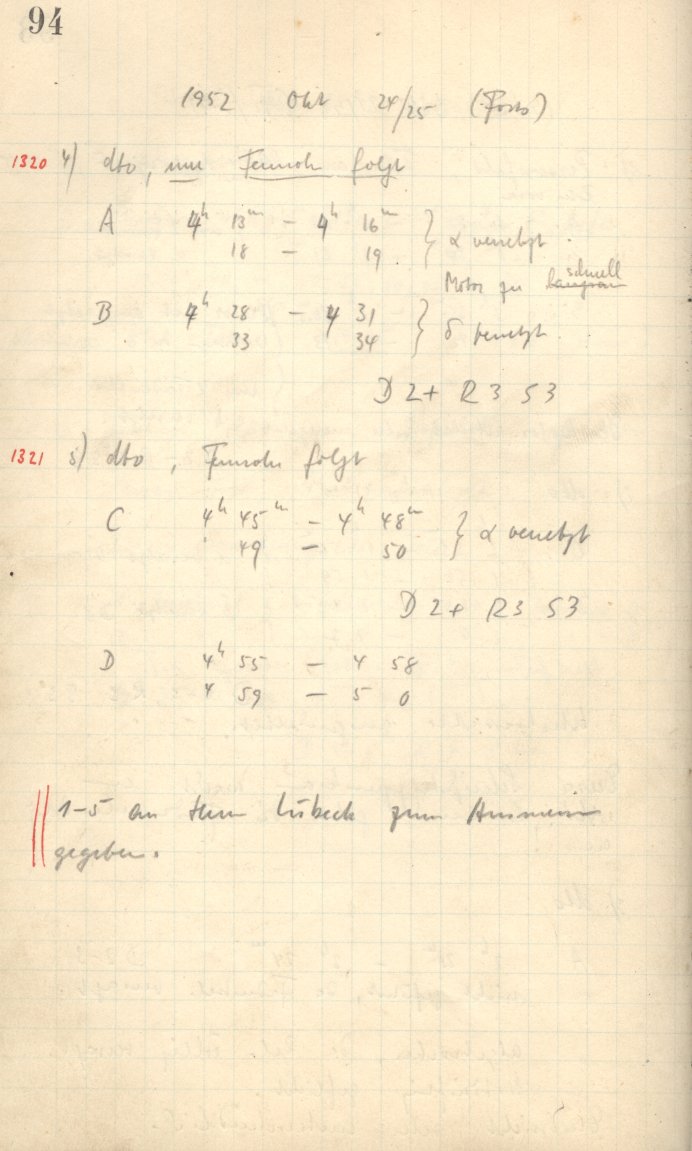 94
1952 Okt 24/25 (Forts)
1320 4) dto, nur Fernrohr folgt
A 4h 13m – 4h 16m } α verletzt.
18 – 19
Motor zu langsam schnell
B 4h 28 – 4 31 } δ verletzt.
33 34
D 2+ R 3 S 3
1321 5) dto, Fernrohr folgt
C 4h 45m – 4h 48m } α verletzt
49 – 50
D 2+ R3 S3
D 4h 55 – 4 58
4 59 – 5 0
1–5 an Herrn Lübeck zum
gegeben.